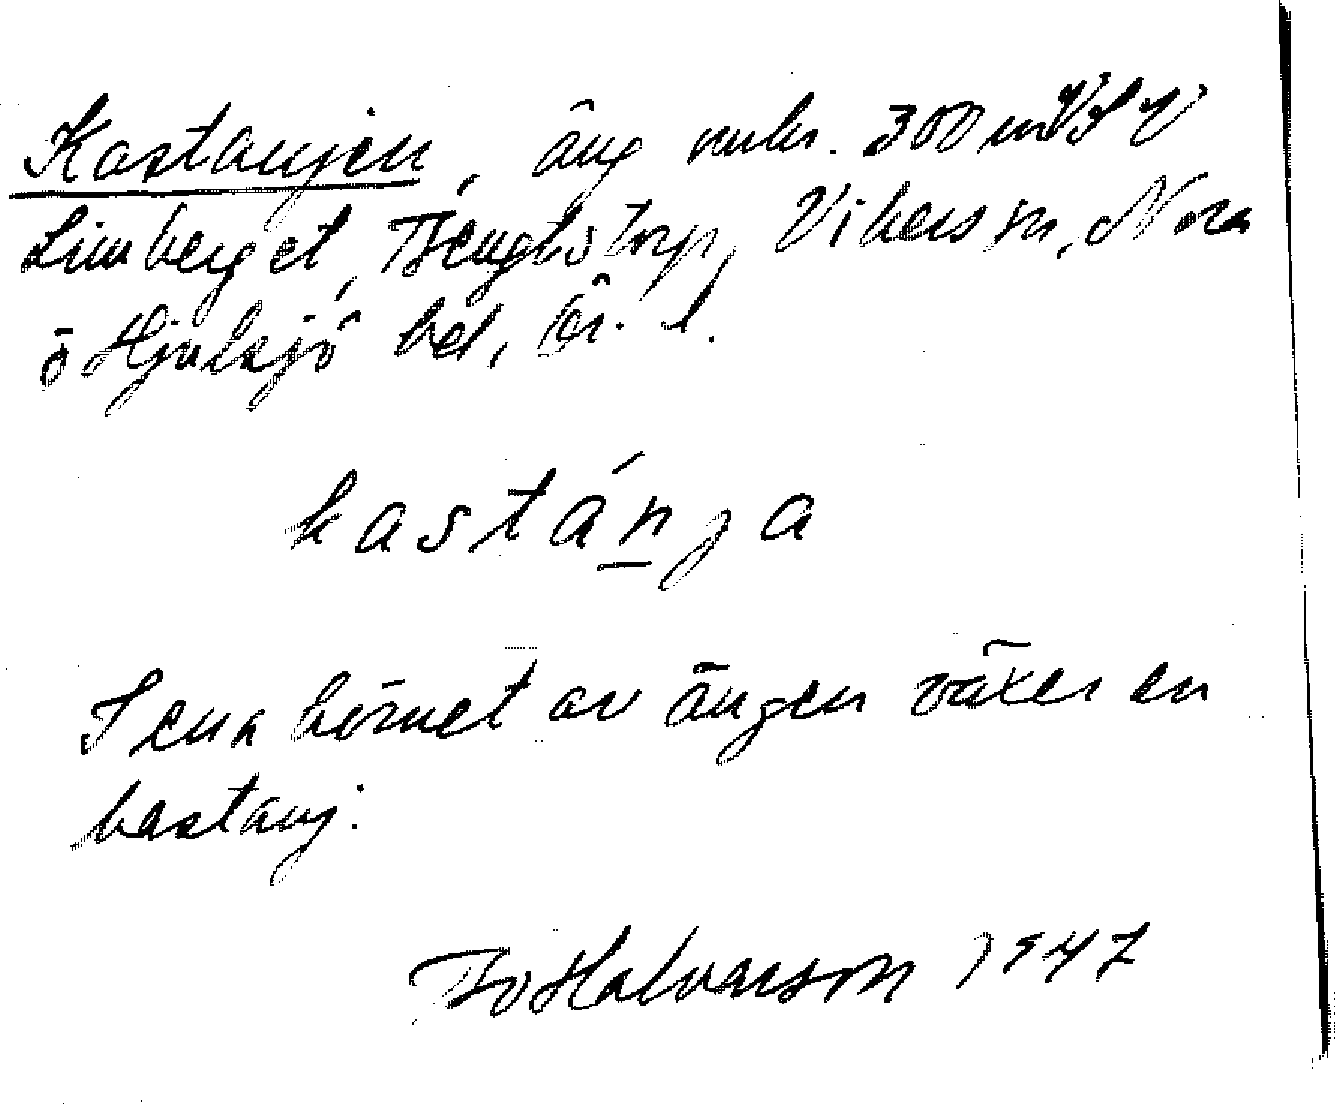 Kastanjen, äng omkr. 300 m VSV
Limberget, Bengtstorp, Vikers sn, Nora
o Hjulsjö bd, Ör. l.
kastánja
I ena hörnet av ängen växer en
kastanj.
Bo Halvarson 1947